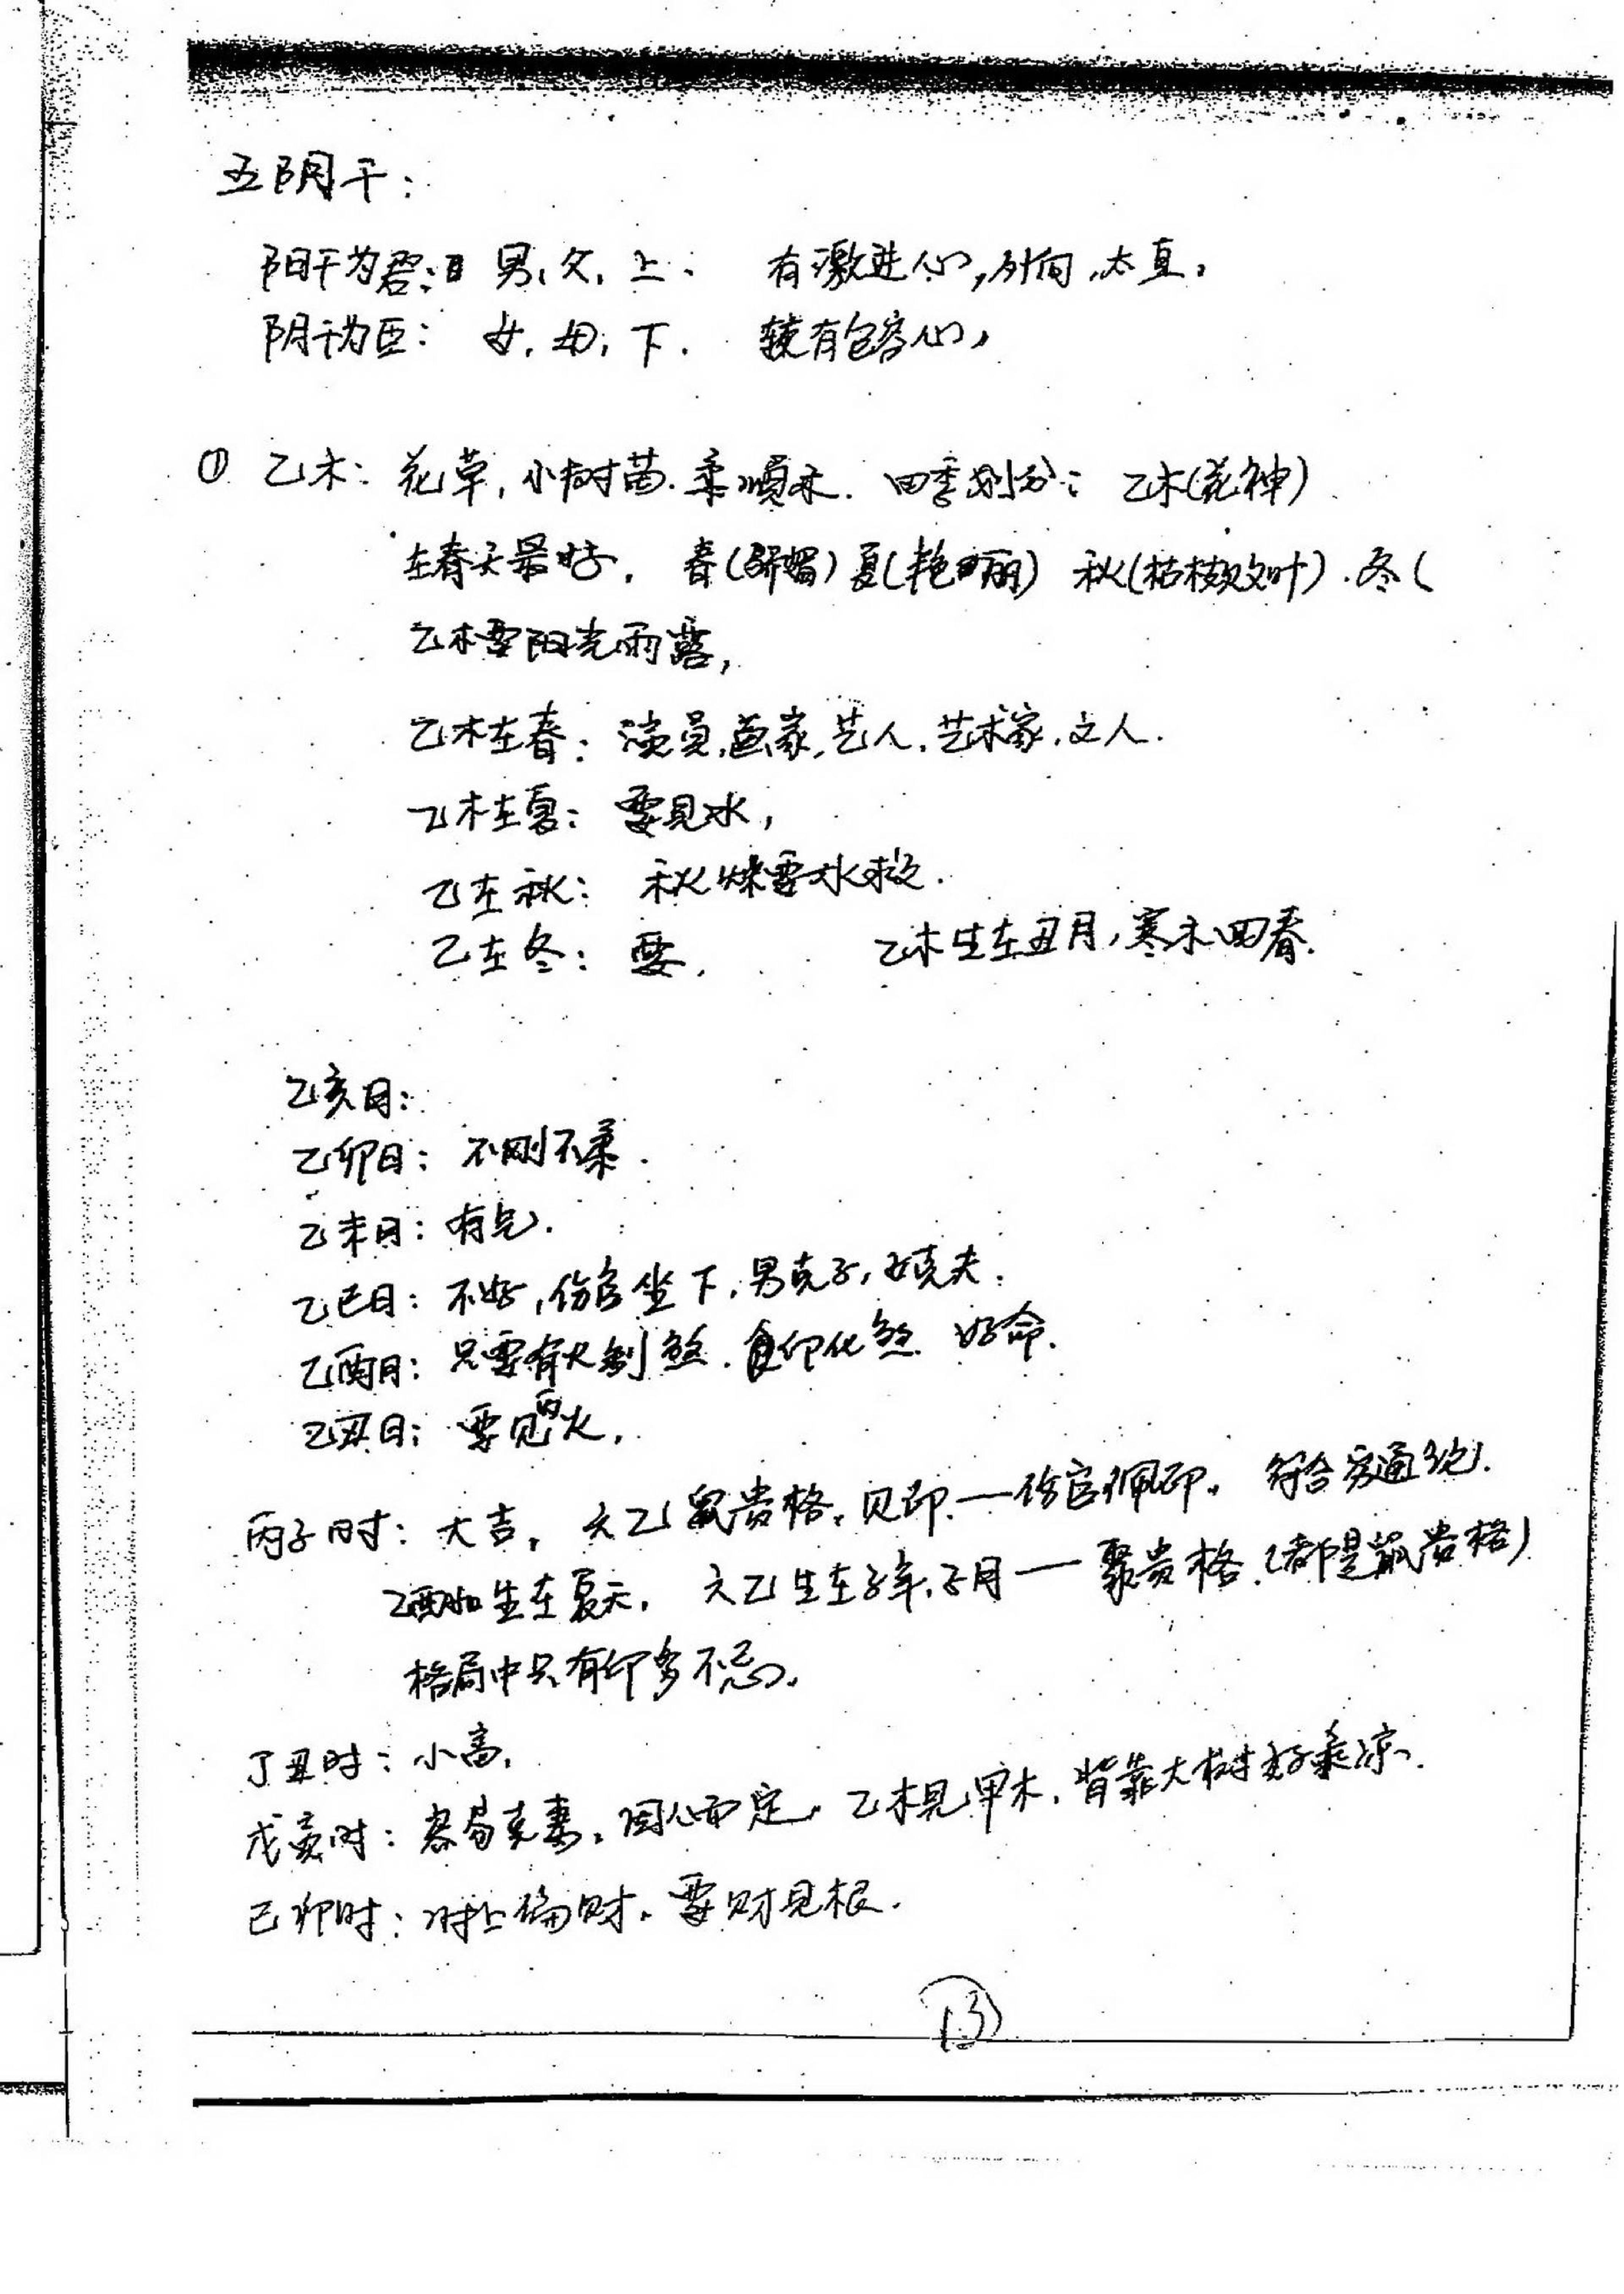 五阴干：
阳干为君： 男，父，上． 有激进心，外向，太直，
阴干为臣： 女，母，下． 较有包容心，
① 乙木：花草，小树苗．柔顺木．四季划分：乙木（花神）
在春天最好．春（娇媚）夏（艳丽）秋（枯枝败叶）．冬（
乙木要阳光雨露，
乙木在春：演员，画家，艺人，艺术家，文人．
乙木在夏：要见水，
乙在秋：秋燥要水救．
乙在冬：要， 乙木生在丑月，寒木回春．
乙亥日：
乙卯日：不刚不柔．
乙未日：有气．
乙巳日：不好，伤官坐下，男克子，女克夫．
乙酉日：只要有火制煞．印化煞 好命．
乙丑日：要见丙火．
丙子时：大吉，六乙鼠贵格，见印．—伤官佩印，符合变通纪．
乙酉 生在夏天．六乙生在子年，子月—聚贵格．（都是鼠贵格）
格局中只有印多不忌．
丁丑时：小富，
戊寅时：容易克妻，因 而定，乙木见甲木，背靠大树好乘凉．
己卯时：时上偏财．要财见根．
13